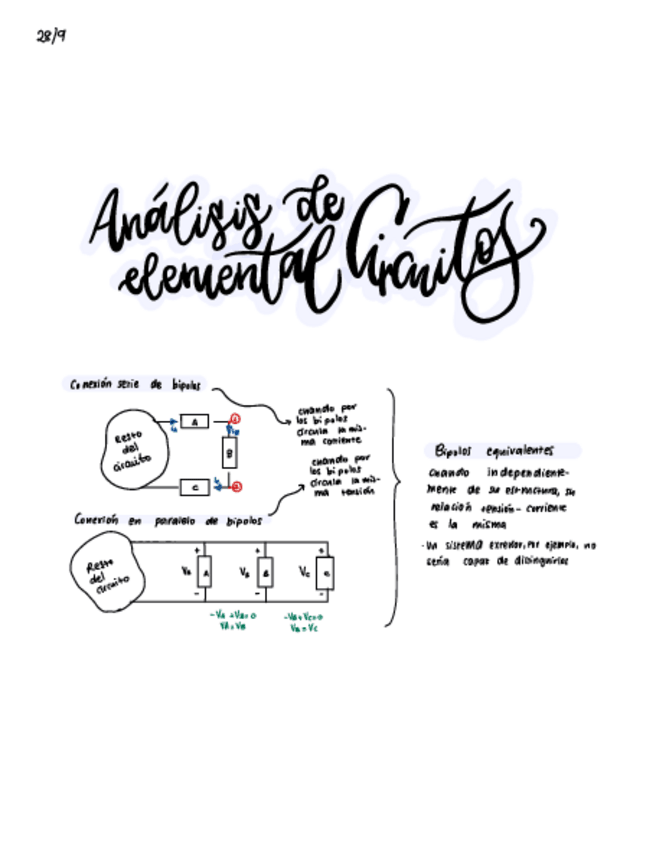 28/9
Análisis de
elemental Circuitos
Conexión serie de bipolos
Resto
del
circuito
A
B
C
1
2
cuando por
los bipolos
circula la mis-
ma corriente
cuando por
los bipolos
circula la mis-
ma tensión
Conexión en paralelo de bipolos
Resto
del
circuito
VA
A
VB
B
VC
C
-VA + VB = 0
VA = VB
-VB + VC = 0
VB = VC
Bipolos equivalentes
cuando independiente-
mente de su estructura, su
relación tensión - corriente
es la misma
· Un sistema exterior, por ejemplo, no
sería capaz de distinguirlos